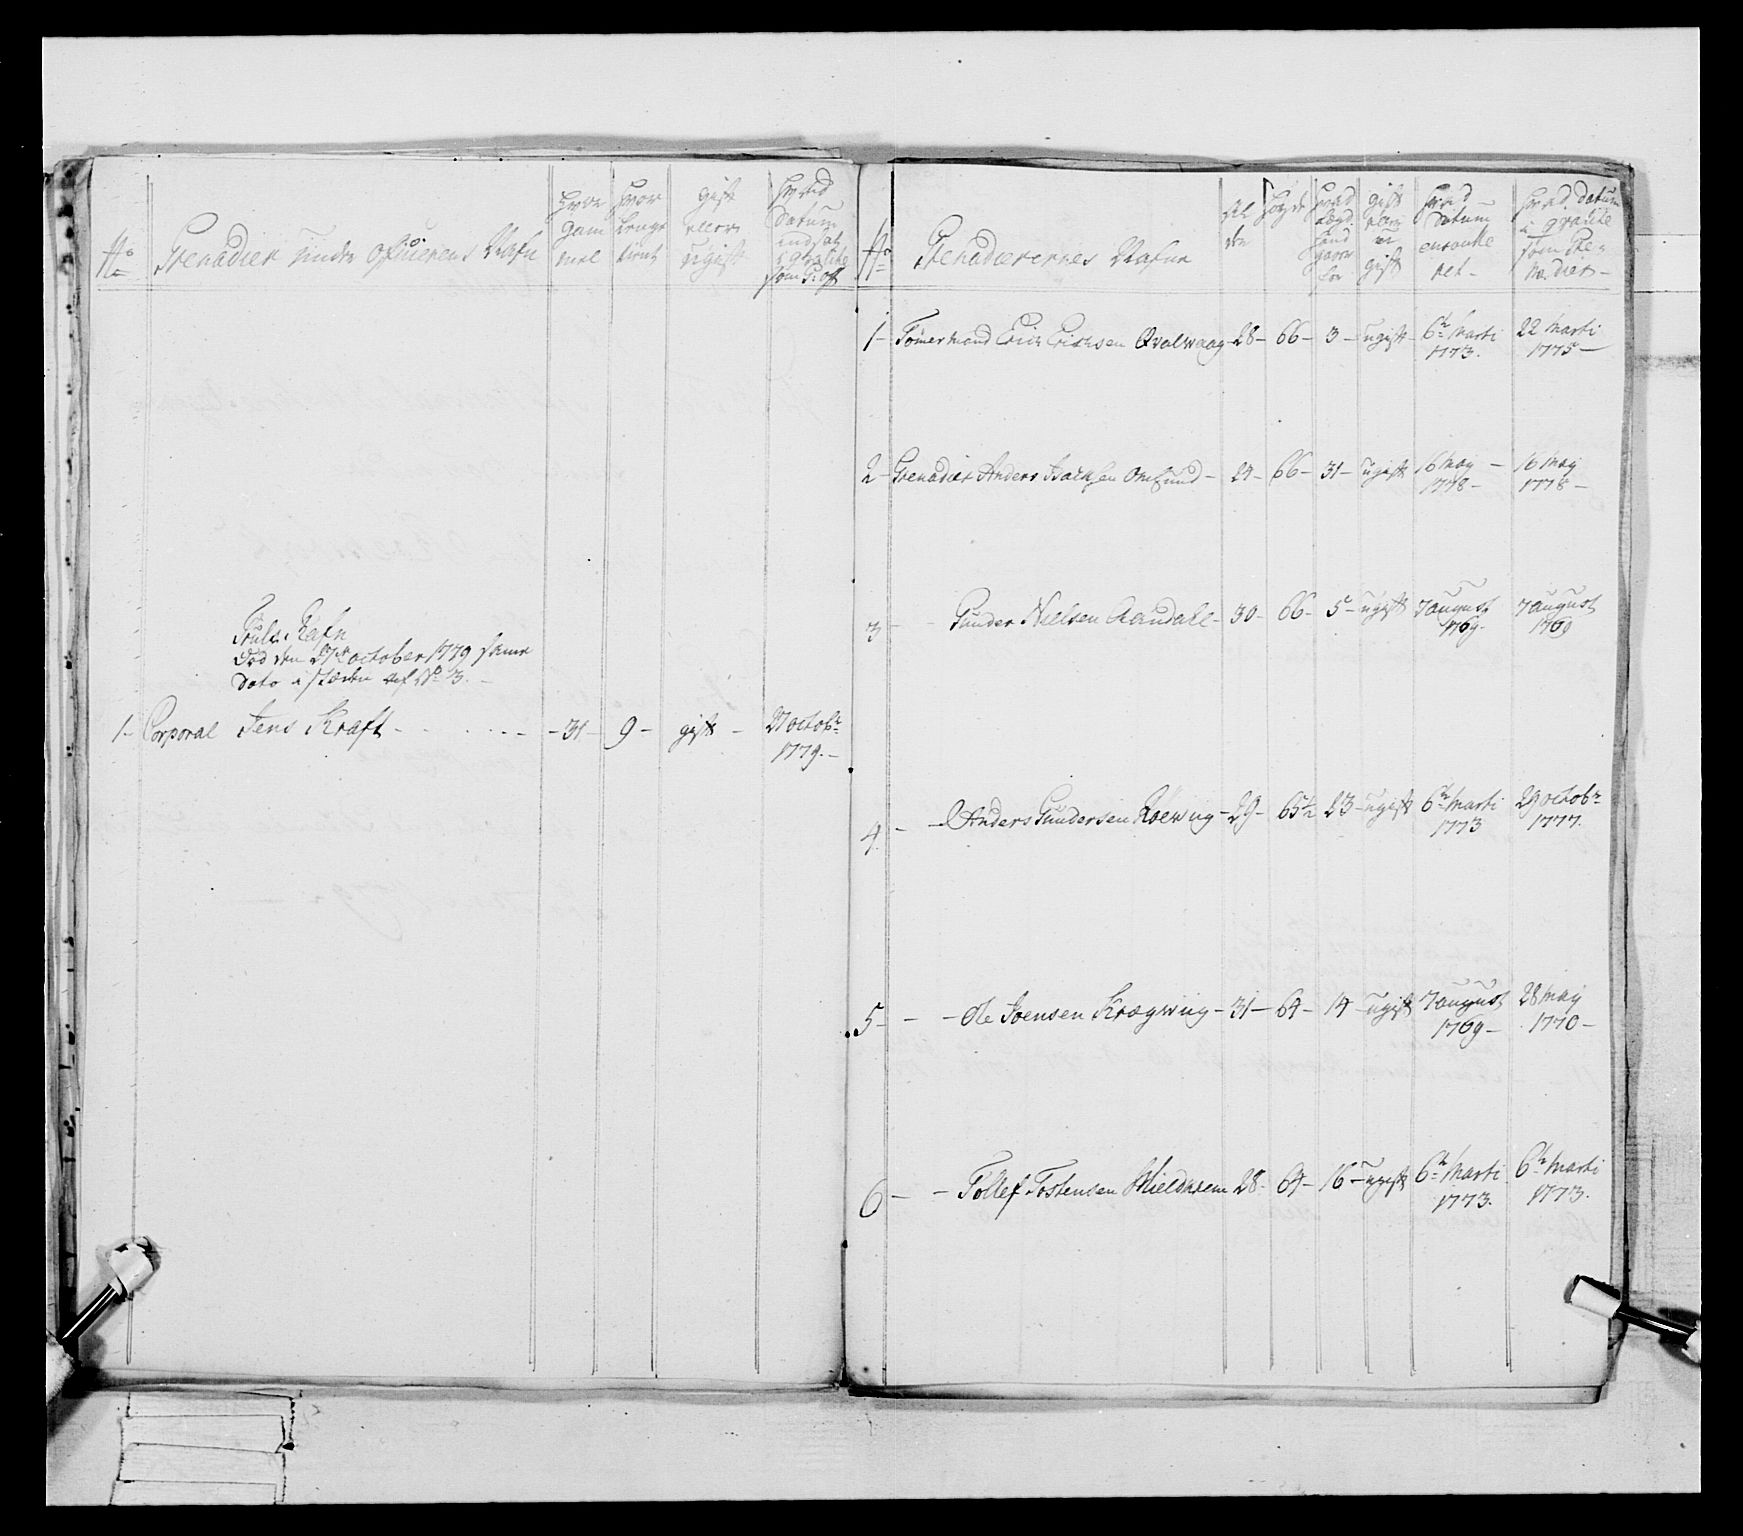 No Grenadier under officerens Nafn
Hvor gammel
Hvor lenge tient
gift eller ugift
Hvad Datum indsat i qvalité som U: off
Truls Rafn
Død den 27de october 1779 samme
Dato i stæden ref No 3.
1 - Corporal Jens Kraft - 31 - 9 - gift - 27 octobr 1779. -
No Grenadierernes Nafne
Alder
Høyde
gift eller ugift
Hvad Datum enroulleret -
Hvad datum i qvalité som Grenadier -
1 - Tømermand Eric Erichsen Qvalwaag - 28 - 66 - 3 - ugift - 6te Marti 1773. 22 Marti 1775 -
2 - Grenadier Anders Isachsen Omsund - 24 - 66 - 31 - ugift 16 May - 1778 - 16 May 1778 -
3 - - Gunder Nielsen Aandahl - 30 - 66 - 5 - ugift 7 august 1769. 7 august 1769
4. - - Anders Gundersen Roewug - 29 - 65½ 23 - ugift 6te Marti 1773 29 octobr 1777.
5 - - - Ole Joensen Kragwug - 31 - 64 - 14 - ugift 7 august 1769 - 28 May 1770 -
6 - - Tollef Tostensen 28 - 64 - 16 - ugift 6te Marti 1773. 6te Marti 1773.